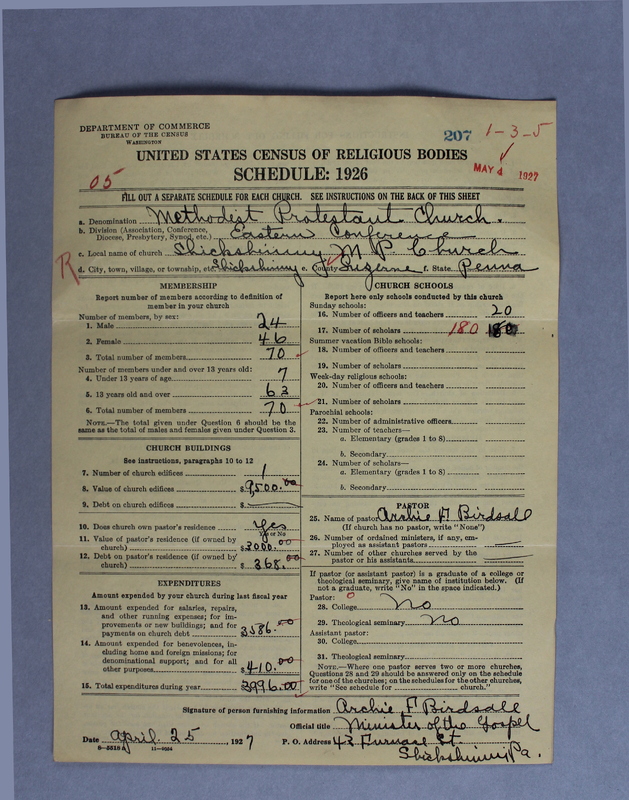 DEPARTMENT OF COMMERCE
BUREAU OF THE CENSUS
WASHINGTON
207 1-3-5
UNITED STATES CENSUS OF RELIGIOUS BODIES
SCHEDULE: 1926
MAY 4 1927
05
FILL OUT A SEPARATE SCHEDULE FOR EACH CHURCH. SEE INSTRUCTIONS ON THE BACK OF THIS SHEET
a. Denomination Methodist Protestant Church.
b. Division (Association, Conference, Diocese, Presbytery, Synod, etc.) Eastern Conference
c. Local name of church Shickshinny M P. Church
R
d. City, town, village, or township, etc. Shickshinny e. County Luzerne f. State Penna
MEMBERSHIP
Report number of members according to definition of
member in your church
Number of members, by sex:
1. Male 24
2. Female 46
3. Total number of members 70
Number of members under and over 13 years old:
4. Under 13 years of age 7
5. 13 years old and over 63
6. Total number of members 70
NOTE.—The total given under Question 6 should be the
same as the total of males and females given under Question 3.
CHURCH BUILDINGS
See instructions, paragraphs 10 to 12
7. Number of church edifices 1
8. Value of church edifices $9500.00
9. Debt on church edifices $
10. Does church own pastor's residence Yes
Yes or No
11. Value of pastor's residence (if owned by
church) $3000.00
12. Debt on pastor's residence (if owned by
church) $368.00
EXPENDITURES
Amount expended by your church during last fiscal year
13. Amount expended for salaries, repairs,
and other running expenses; for im-
provements or new buildings; and for
payments on church debt 3586.00
14. Amount expended for benevolences, in-
cluding home and foreign missions; for
denominational support; and for all
other purposes $410.00
15. Total expenditures during year 3996.00
CHURCH SCHOOLS
Report here only schools conducted by this church
Sunday schools:
16. Number of officers and teachers 20
17. Number of scholars 180 180
Summer vacation Bible schools:
18. Number of officers and teachers
19. Number of scholars
Week-day religious schools:
20. Number of officers and teachers
21. Number of scholars
Parochial schools:
22. Number of administrative officers
23. Number of teachers—
a. Elementary (grades 1 to 8)
b. Secondary
24. Number of scholars—
a. Elementary (grades 1 to 8)
b. Secondary
PASTOR
25. Name of pastor Archie F Birdsall
(If church has no pastor, write "None")
26. Number of ordained ministers, if any, em-
ployed as assistant pastors
27. Number of other churches served by the
pastor or his assistants
If pastor (or assistant pastor) is a graduate of a college or
theological seminary, give name of institution below. (If
not a graduate, write "No" in the space indicated.)
Pastor: 0
28. College No
29. Theological seminary No
Assistant pastor:
30. College
31. Theological seminary
NOTE.—Where one pastor serves two or more churches,
Questions 28 and 29 should be answered only on the schedule
for one of the churches; on the schedules for the other churches,
write "See schedule for church."
Signature of person furnishing information Archie F Birdsall
Official title Minister of the Gospel
Date April 25, 1927 P. O. Address 43 Furnace St.
8-5518 A 11-9024 Shickshinny Pa.